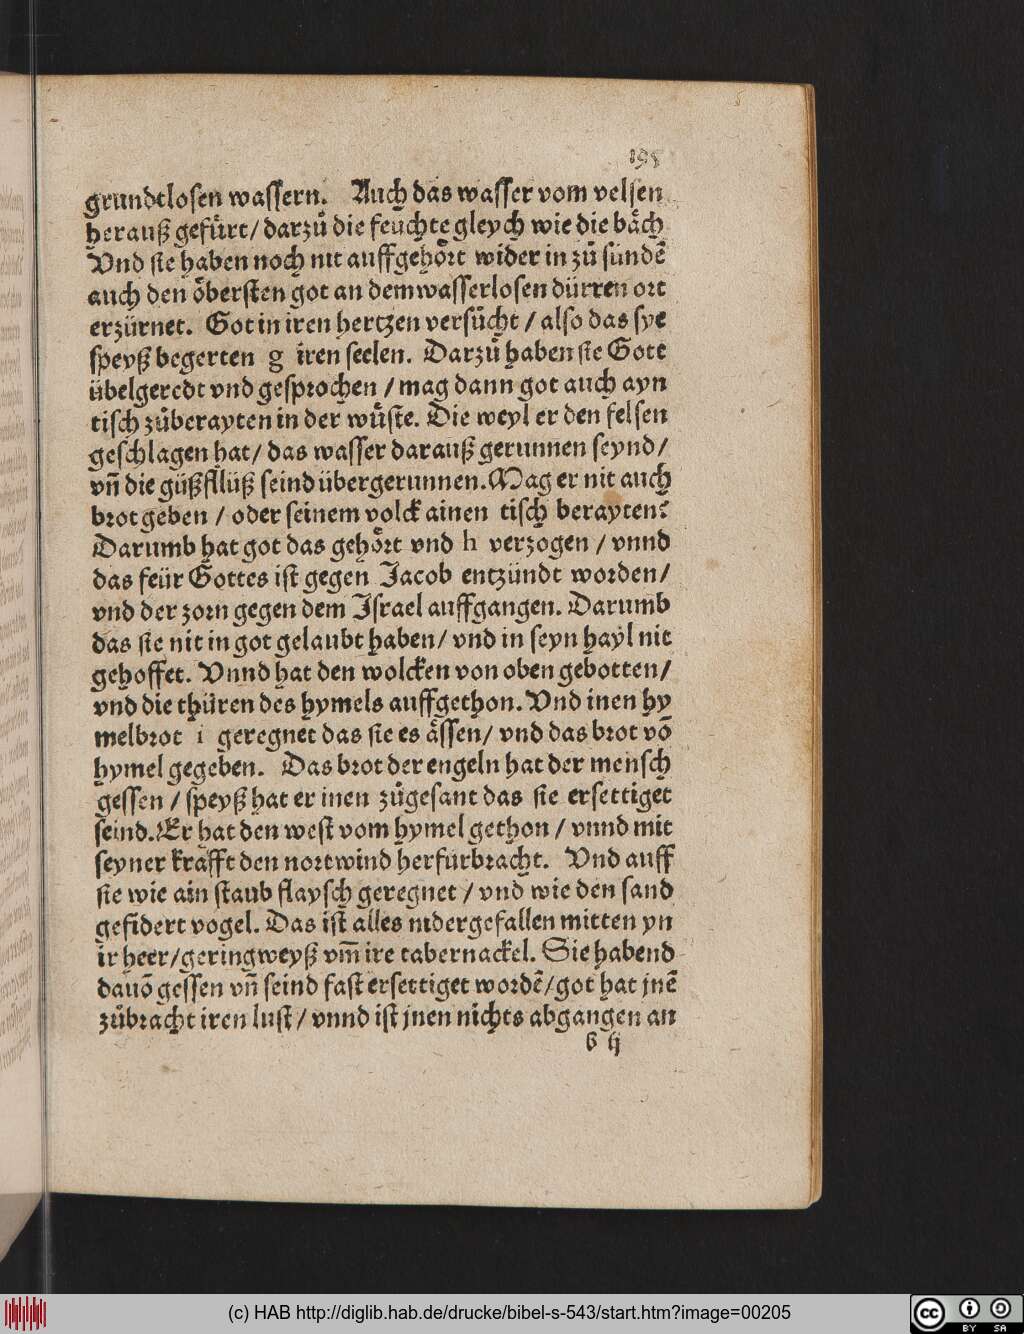 198
grundtlosen wassern. Auch das wasser vom velsen
herauß gefürt/ darzů die feuchte gleych wie die bäch
Vnd sie haben noch nit auffgehört wider in zů sundē
auch den öbersten got an dem wasserlosen dürren ort
erzürnet. Got in iren hertzen versůcht / also das sye
speyß begerten g iren seelen. Darzů haben sie Gott
übelgeredt vnd gesprochen / mag dann got auch ayn
tisch zůberayten in der wůste. Die weyl er den felsen
geschlagen hat/ das wasser darauß gerunnen seynd/
vñ die güßflüß seind übergerunnen. Mag er nit auch
brot geben / oder seinem volck ainen tisch berayten?
Darumb hat got das gehört vnd h verzogen / vnnd
das feür Gottes ist gegen Jacob entzündt worden/
vnd der zorn gegen dem Israel auffgangen. Darumb
das sie nit in got gelaubt haben/ vnd in seyn hayl nit
gehoffet. Vnnd hat den wolcken von oben gebotten/
vnd die thüren des hymels auffgethon. Vnd inen hy
melbrot i geregnet das sie es ässen/ vnd das brot vō
hymel gegeben. Das brot der engeln hat der mensch
gessen / speyß hat er inen zůgesant das sie ersettiget
seind. Er hat den west vom hymel gethon / vnnd mit
seyner krafft den nortwind herfurbracht. Vnd auff
sie wie ain staub flaysch geregnet / vnd wie den sand
gefidert vogel. Das ist alles nidergefallen mitten yn
ir heer/geringweyß vm̄ ire tabernackel. Sie habend
dauō gessen vñ seind fast ersettiget wordē/got hat jnē
zůbracht iren lust / vnnd ist jnen nichts abgangen an
b ij
(c) HAB http://diglib.hab.de/drucke/bibel-s-543/start.htm?image=00205
cc BY SA